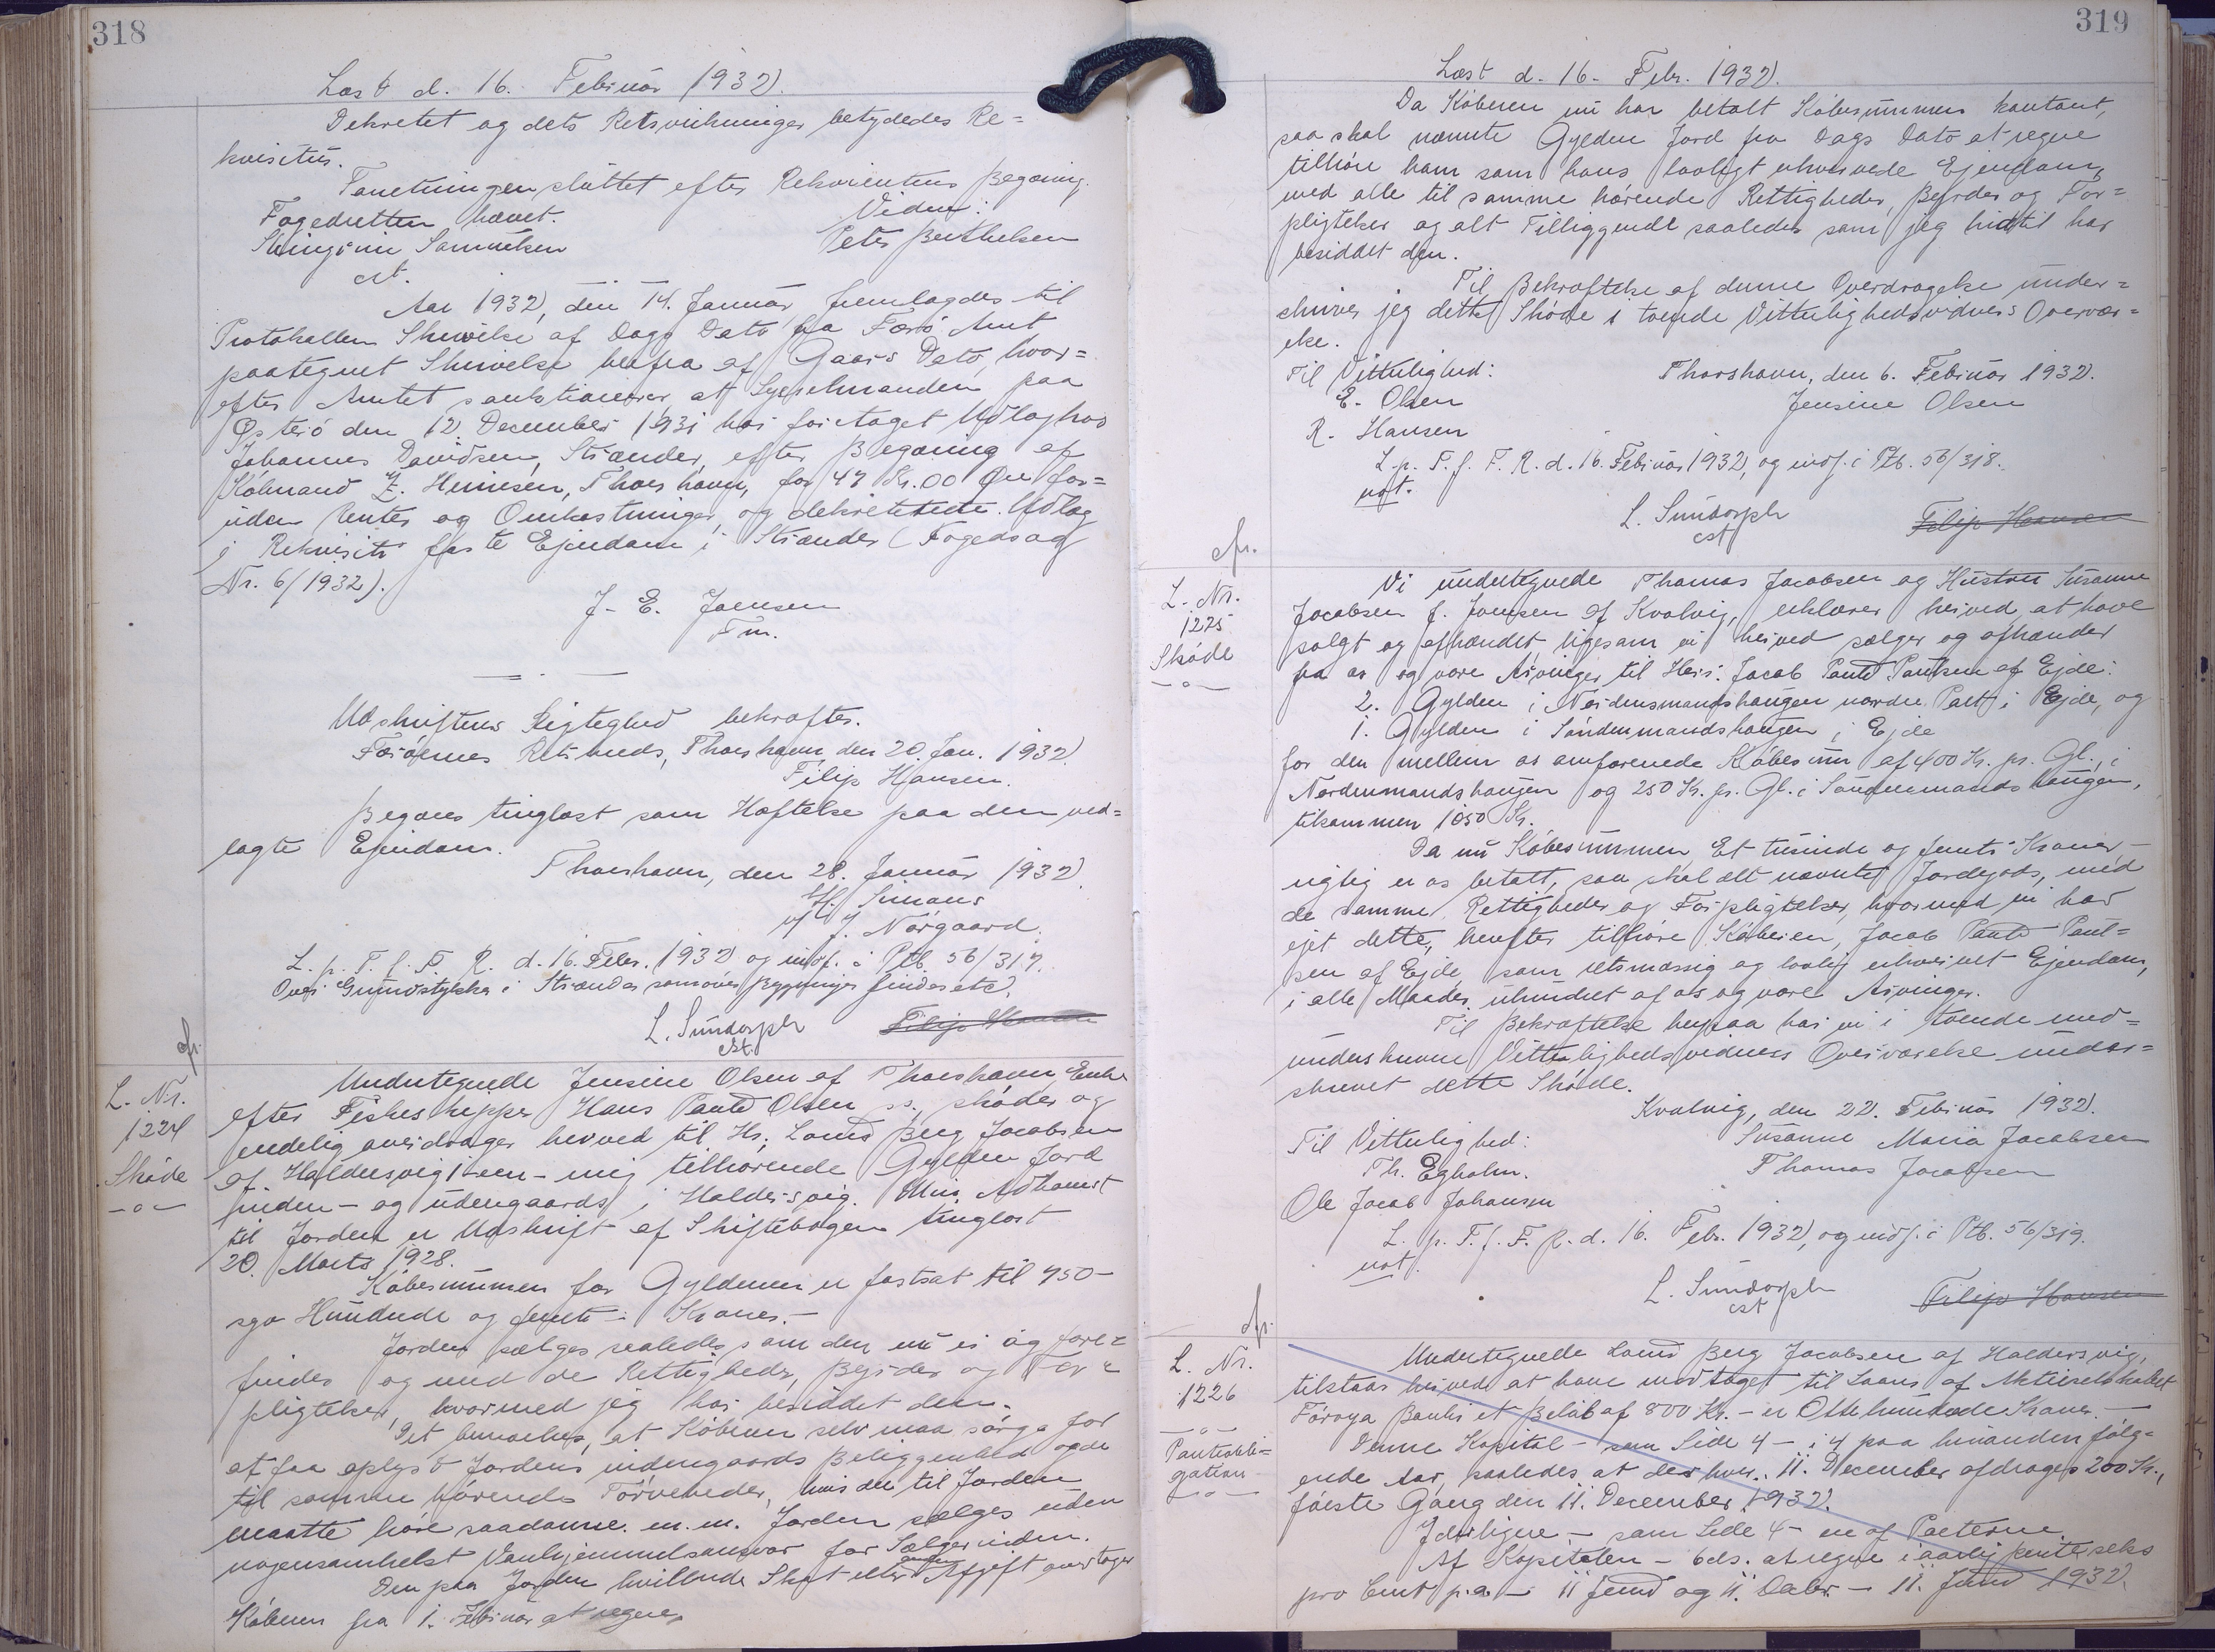 318
Læst d. 16. Februar 1932.
Dekretet og dets Retsvirkninger betydedes Re=
kvisitus.
Forretningen sluttet efter Rekvirentens Begæring.
Fogedretten hævet. Vidne:
Samuelsen Peter Berthelsen
cst.
Aar 1932, den 14. Januar fremlagdes til
Protokollen Skrivelse af Dags Dato fra Færø Amt
paategnet Skrivelse herfra af Gaars Dato, hvor=
efter Amtet sanktionerer at Sysselmanden paa
Østerø den 12 December 1931 har foretaget Udlæg hos
Johannes Davidsen, Strænder, efter Begæring af
Købmand Z. Heinesen, Thorshavn, for 47 Kr. 00 Øre for=
uden Renter og Omkostninger, og dekreterede Udlæg
i Rekvisiti faste Ejendom i Strænder (Fogedsag
Nr. 6/1932).
J. E. Joensen
Fm.
Udskriftens Rigtighed bekræftes.
Færøernes Retskreds, Thorshavn, den 20. Jan. 1932.
Filip Hansen.
Begæres tinglæst som Hæftelse paa den ved=
lagte Ejendom.
Thorshavn, den 28. Januar 1932.
H. Simans
J. Nørgaard.
L. p. T. f. F. R. d. 16. Febr. 1932 og indf. i Ptb. 56/317.
Over Grundstykker i Strænder samt over Bygninger findes etc.
L. Sundorph Filip Hansen
cst.
cfr.
L. Nr.
1224
Skøde
Undertegnede Jensine Olsen af Thorshavn, Enke
efter Fiskeskipper Hans Pauld Olsen ss., skøder og
endelig overdrager herved til Hr. Laurs Berg Jacobsen
af Haldersvig 1 een - mig tilhørende Gylden Jord
inden- og udengaards i Haldersvig. Min Adkomst
til Jorden er Udskrift af Skiftebogen tinglæst
20. Marts 1928.
Købesummen for Gylden er fastsat til 750 -
syv Hundrede og femti - Kroner. -
Jorden sælges saaledes som den nu er og fore=
findes og med de Rettigheder, Byrder og For=
pligtelser, hvormed jeg har besiddet den.
Det bemærkes, at Køberen selv maa sørge for
at faa oplyst Jordens indengaards Beliggenhed og de
til samme hørende Tørveheder, hvis der til Jorden
maatte høre saadanne. m. m. Jorden sælges uden
nogensomhelst Vanhjemmelsansvar for Sælgerinden.
Den paa Jorden hvilende Skat eller anden Afgift overtager
Køberen fra 1. Februar at regne.
319
Læst d. 16. Febr. 1932.
Da Køberen nu har betalt Købesummen kontant,
saa skal nævnte Gylden Jord fra Dags Dato at regne
tilhøre ham som hans lovligt erhvervede Ejendom,
med alle til samme hørende Rettigheder, Byrder og For=
pligtelser og alt Tilliggende saaledes som jeg hidtil har
besiddet den.
Til Bekræftelse af denne Overdragelse under=
skriver jeg dette Skøde i tvende Vitterlighedsvidners Overvær=
else.
Til Vitterlighed: Thorshavn, den 6. Februar 1932.
E. Olsen Jensine Olsen
R. Hansen
L. p. T. f. F. R. d. 16. Februar 1932, og indf. i Ptb. 56/318.
not.
L. Sundorph Filip Hansen
cst
cfr.
L. Nr.
1225
Skøde
Vi undertegnede Thomas Jacobsen og Hustru Susanne
Jacobsen f. Joensen af Kvalvig, erklærer herved at have
solgt og afhændet, ligesom vi herved sælger og afhænder
fra os og vore Arvinger til Herr. Jacob Pauld Paulsen af Ejde:
2. Gylden i Nordensmandshaugen nordre Part i Ejde, og
1. Gylden i Søndenmandshaugen i Ejde
for den mellem os omforenede Købesum af 400 Kr. pr. Gl. i
Nordenmandshaugen og 250 Kr. pr. Gl. i Søndenmandshaugen,
tilsammen 1050 Kr.
Da nu Købesummen Et tusinde og femti Kroner -
rigtig er os betalt, saa skal alt nævnte Jordegods, med
de samme Rettigheder og Forpligtelser, hvormed vi har
ejet dette, herefter tilhøre Køberen, Jacob Pauld Paul=
sen af Ejde, som retsmæssig og lovlig erhvervet Ejendom,
i alle Maader uhindret af os og vore Arvinger.
Til Bekræftelse herpaa har vi i tvende med=
underskrevne Vitterlighedsvidners Overværelse under=
skrevet dette Skøde.
Kvalvig, den 22. Februar 1932.
Til Vitterlighed: Susanne Maria Jacobsen
Th. Egholm. Thomas Jacobsen
Ole Jacob Johansen
L. p. T. f. F. R. d. 16. Febr. 1932, og indf. i Ptb. 56/319.
not.
L. Sundorph Filip Hansen
cst
cfr.
L. Nr.
1226
Panteobli=
gation
Undertegnede Laurs Berg Jacobsen af Haldersvig,
tilstaar herved at have modtaget til Laans af Aktieselskabet
Føroya Banki et Beløb af 800 Kr. - er Otte hundrede Kroner. -
Denne Kapital - som Side 4 - i 4 paa hinanden følg=
ende Aar, saaledes at der hver 11. December afdrages 200 Kr.,
første Gang den 11. December 1932.
Iøvrigt - som Side 4 - en af Parterne.
Af Kapitalen - 6 ds. at regne i aarlig Rente seks
pro Cent p.a. - 11 Juni og 11. Decbr. - 11. Juni 1932.